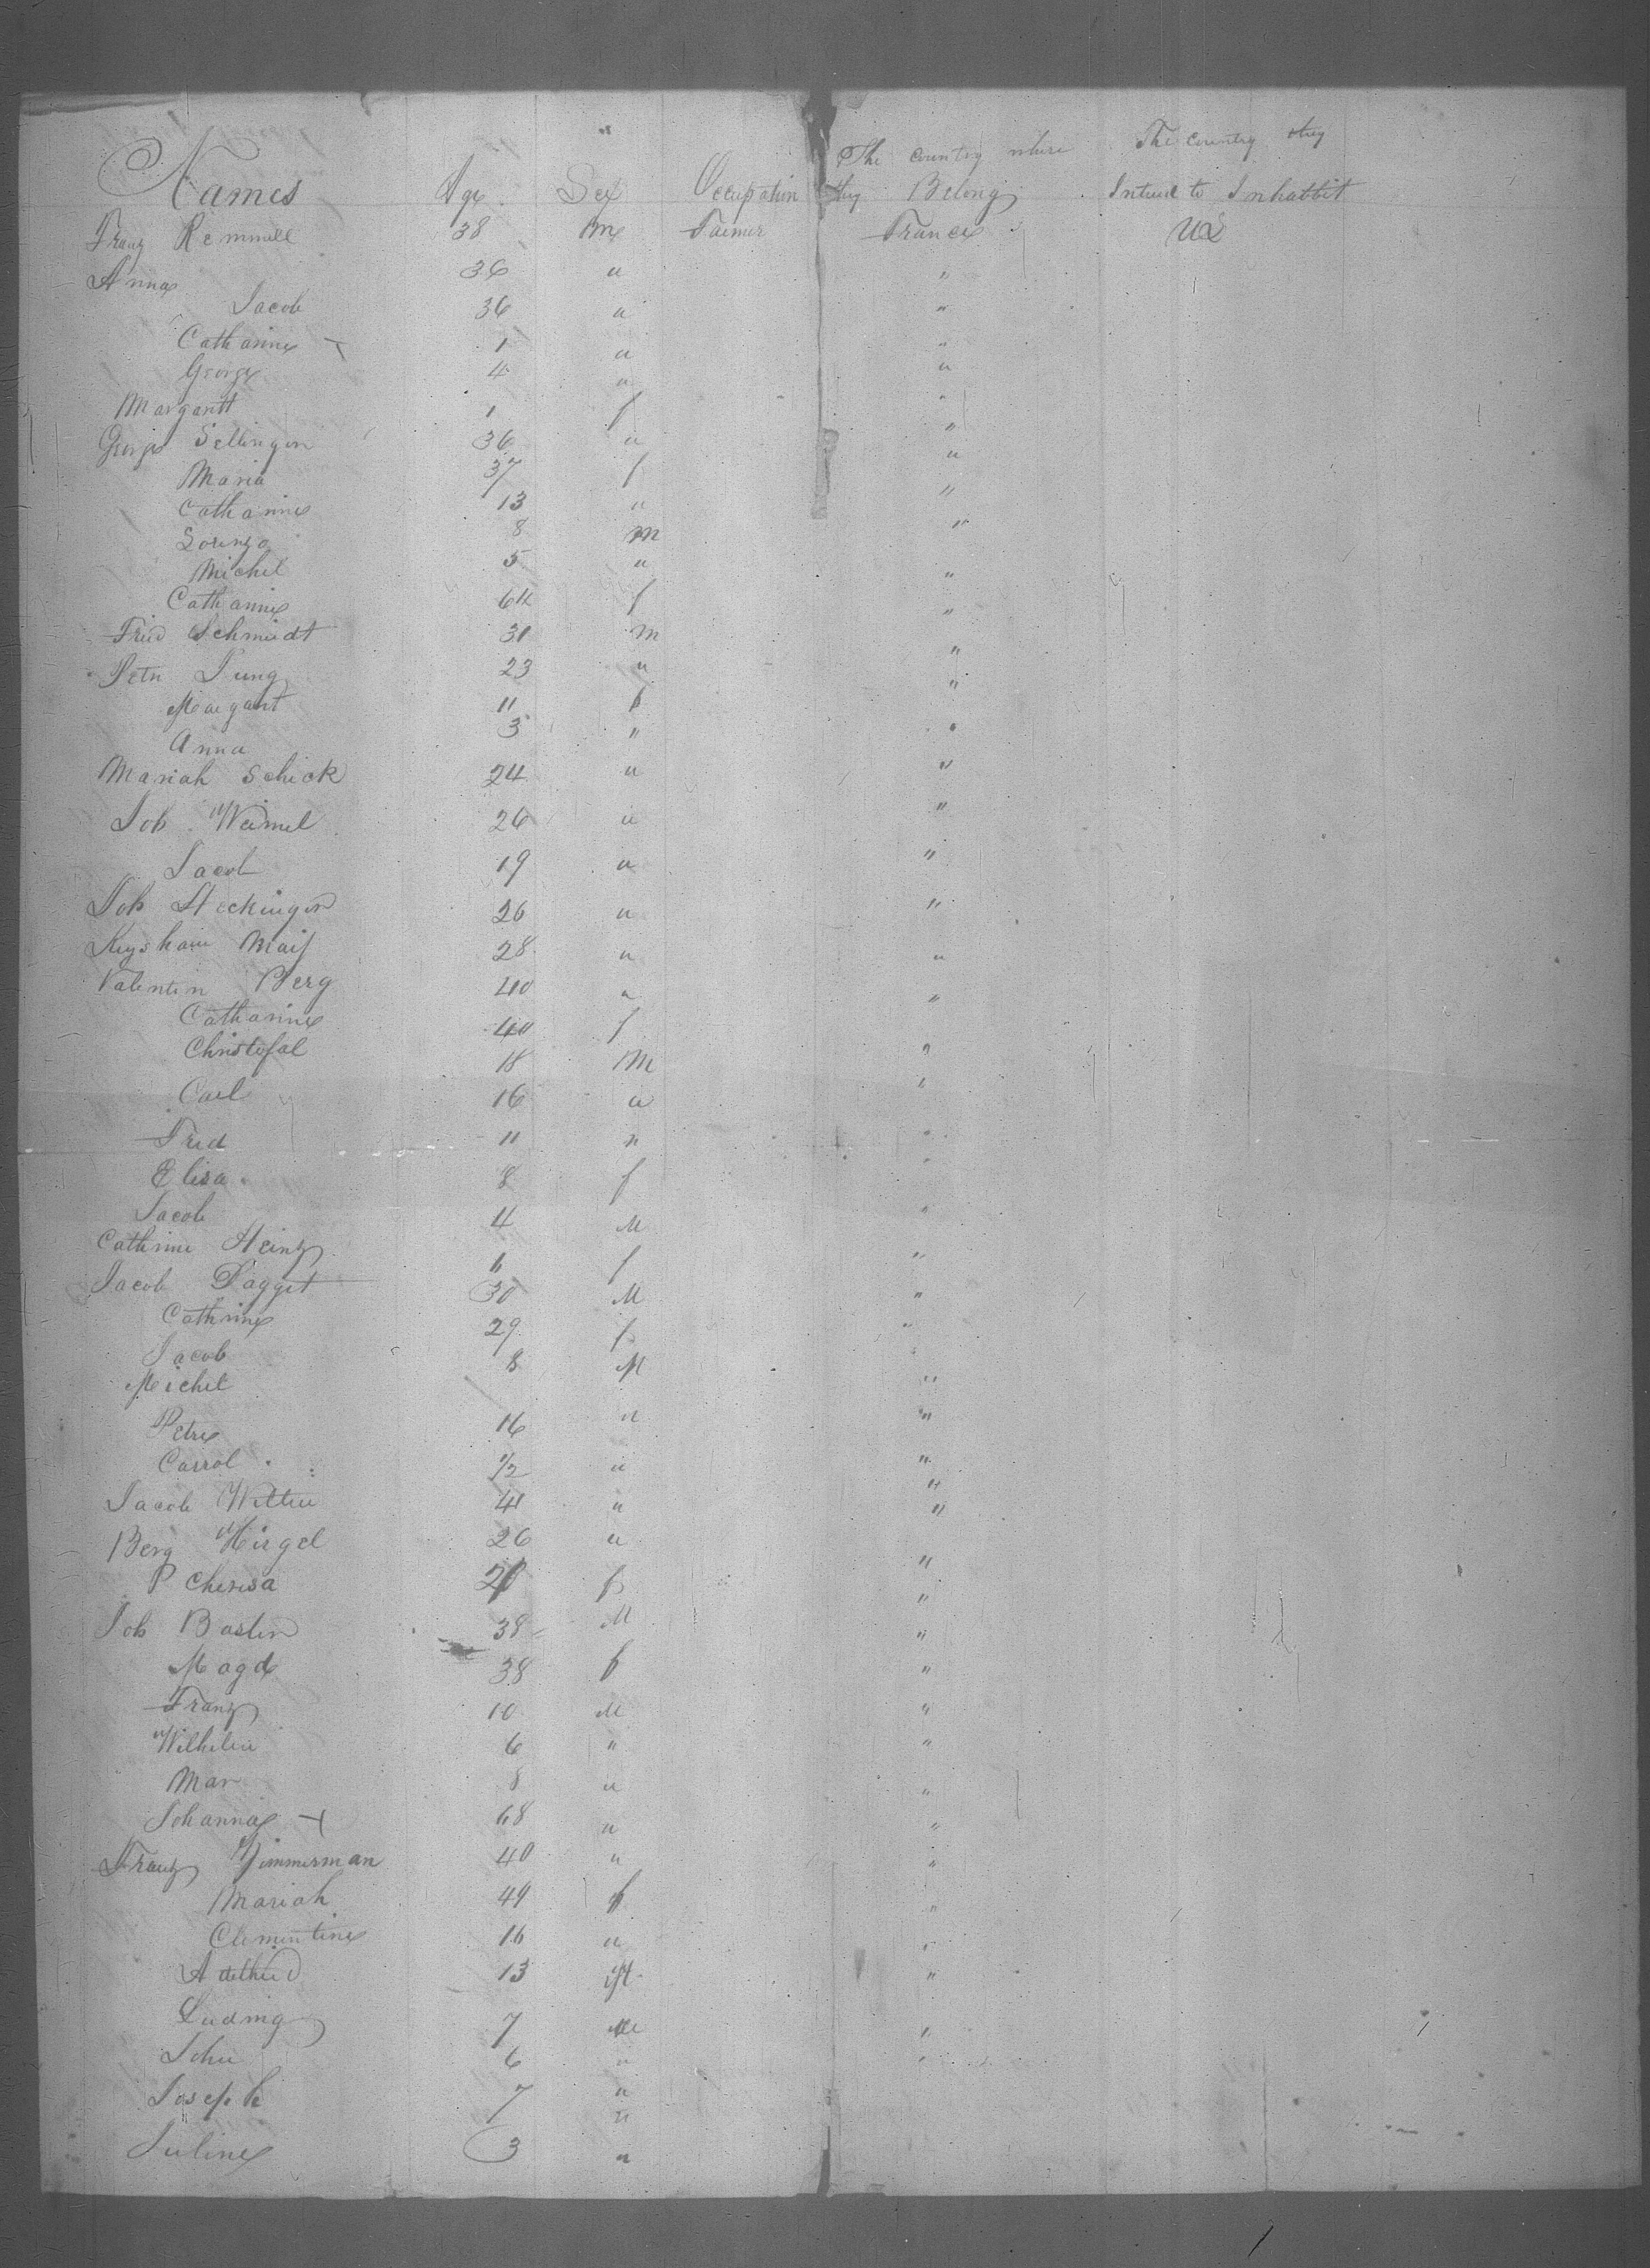 The country where The country they
Names Age Sex Occupation they Belong Intend to Inhabbit
Franz Remmell 38 m Farmer France US
Anna 36 " "
Jacob 36 " "
Catharine 1 " "
George 4 " "
Margarett 1 f "
George Sellinger 36 " "
Maria 37 f "
Catharine 13 " "
Lorenzo 8 M "
Michel 5 " "
Catharine 64 f "
Fried Schmidt 31 m "
Peter Jung 23 " "
Margaret 11 f "
Anna 3 " "
Mariah Schick 24 " "
Joh Weimel 26 " "
Jacob 19 " "
Joh Heckinger 26 " "
28 " "
Valentin Berg 40 " "
Catharine 40 f
Christofal 18 M "
Carl 16 " "
Fried 11 " "
Elisa 8 f "
Jacob 4 M "
Cathrine Heinz 6 f "
Jacob Pagget 30 M "
Cathrine 29 f "
Jacob 8 M "
Michel "
Petre 16 " "
Carrol 1/2 " "
Jacob 41 " "
Berg Hirgel 26 " "
f "
Joh Basten 38 M "
Magd 38 f "
Franz 10 M "
Wilhelm 6 " "
Mar 8 " "
Johanna 68 " "
Franz Zimmerman 40 " "
Mariah 49 f "
Clementine 16 " "
13 "
Ludwig 7 M "
John 6 " "
Joseph 7 "
Juline 3 "